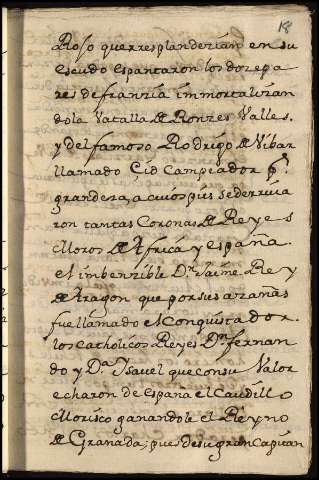 18
Roso querresplanderian en su
escudo espantaron los doze pa
res de franzia immortalizan
do la Vatalla de Ronzes Valles.
y del famoso Rodrigo de Vibar
llamado Çid Campeador pr.
grandeza, a cuios pies se derriua
ron tantas Coronas de Reyes
Moros de Africa y españa.
el imbenzible Dn Jaime. Rey
de Aragon que por sus azañas
fue llamado el Conquistador.
los Catholicos Reyes Dn fernan
do y Da Ysauel que con su Valor
echaron de España el Caudillo
Morisco ganandole el Reyno
de Granada; pues de su gran Capitan